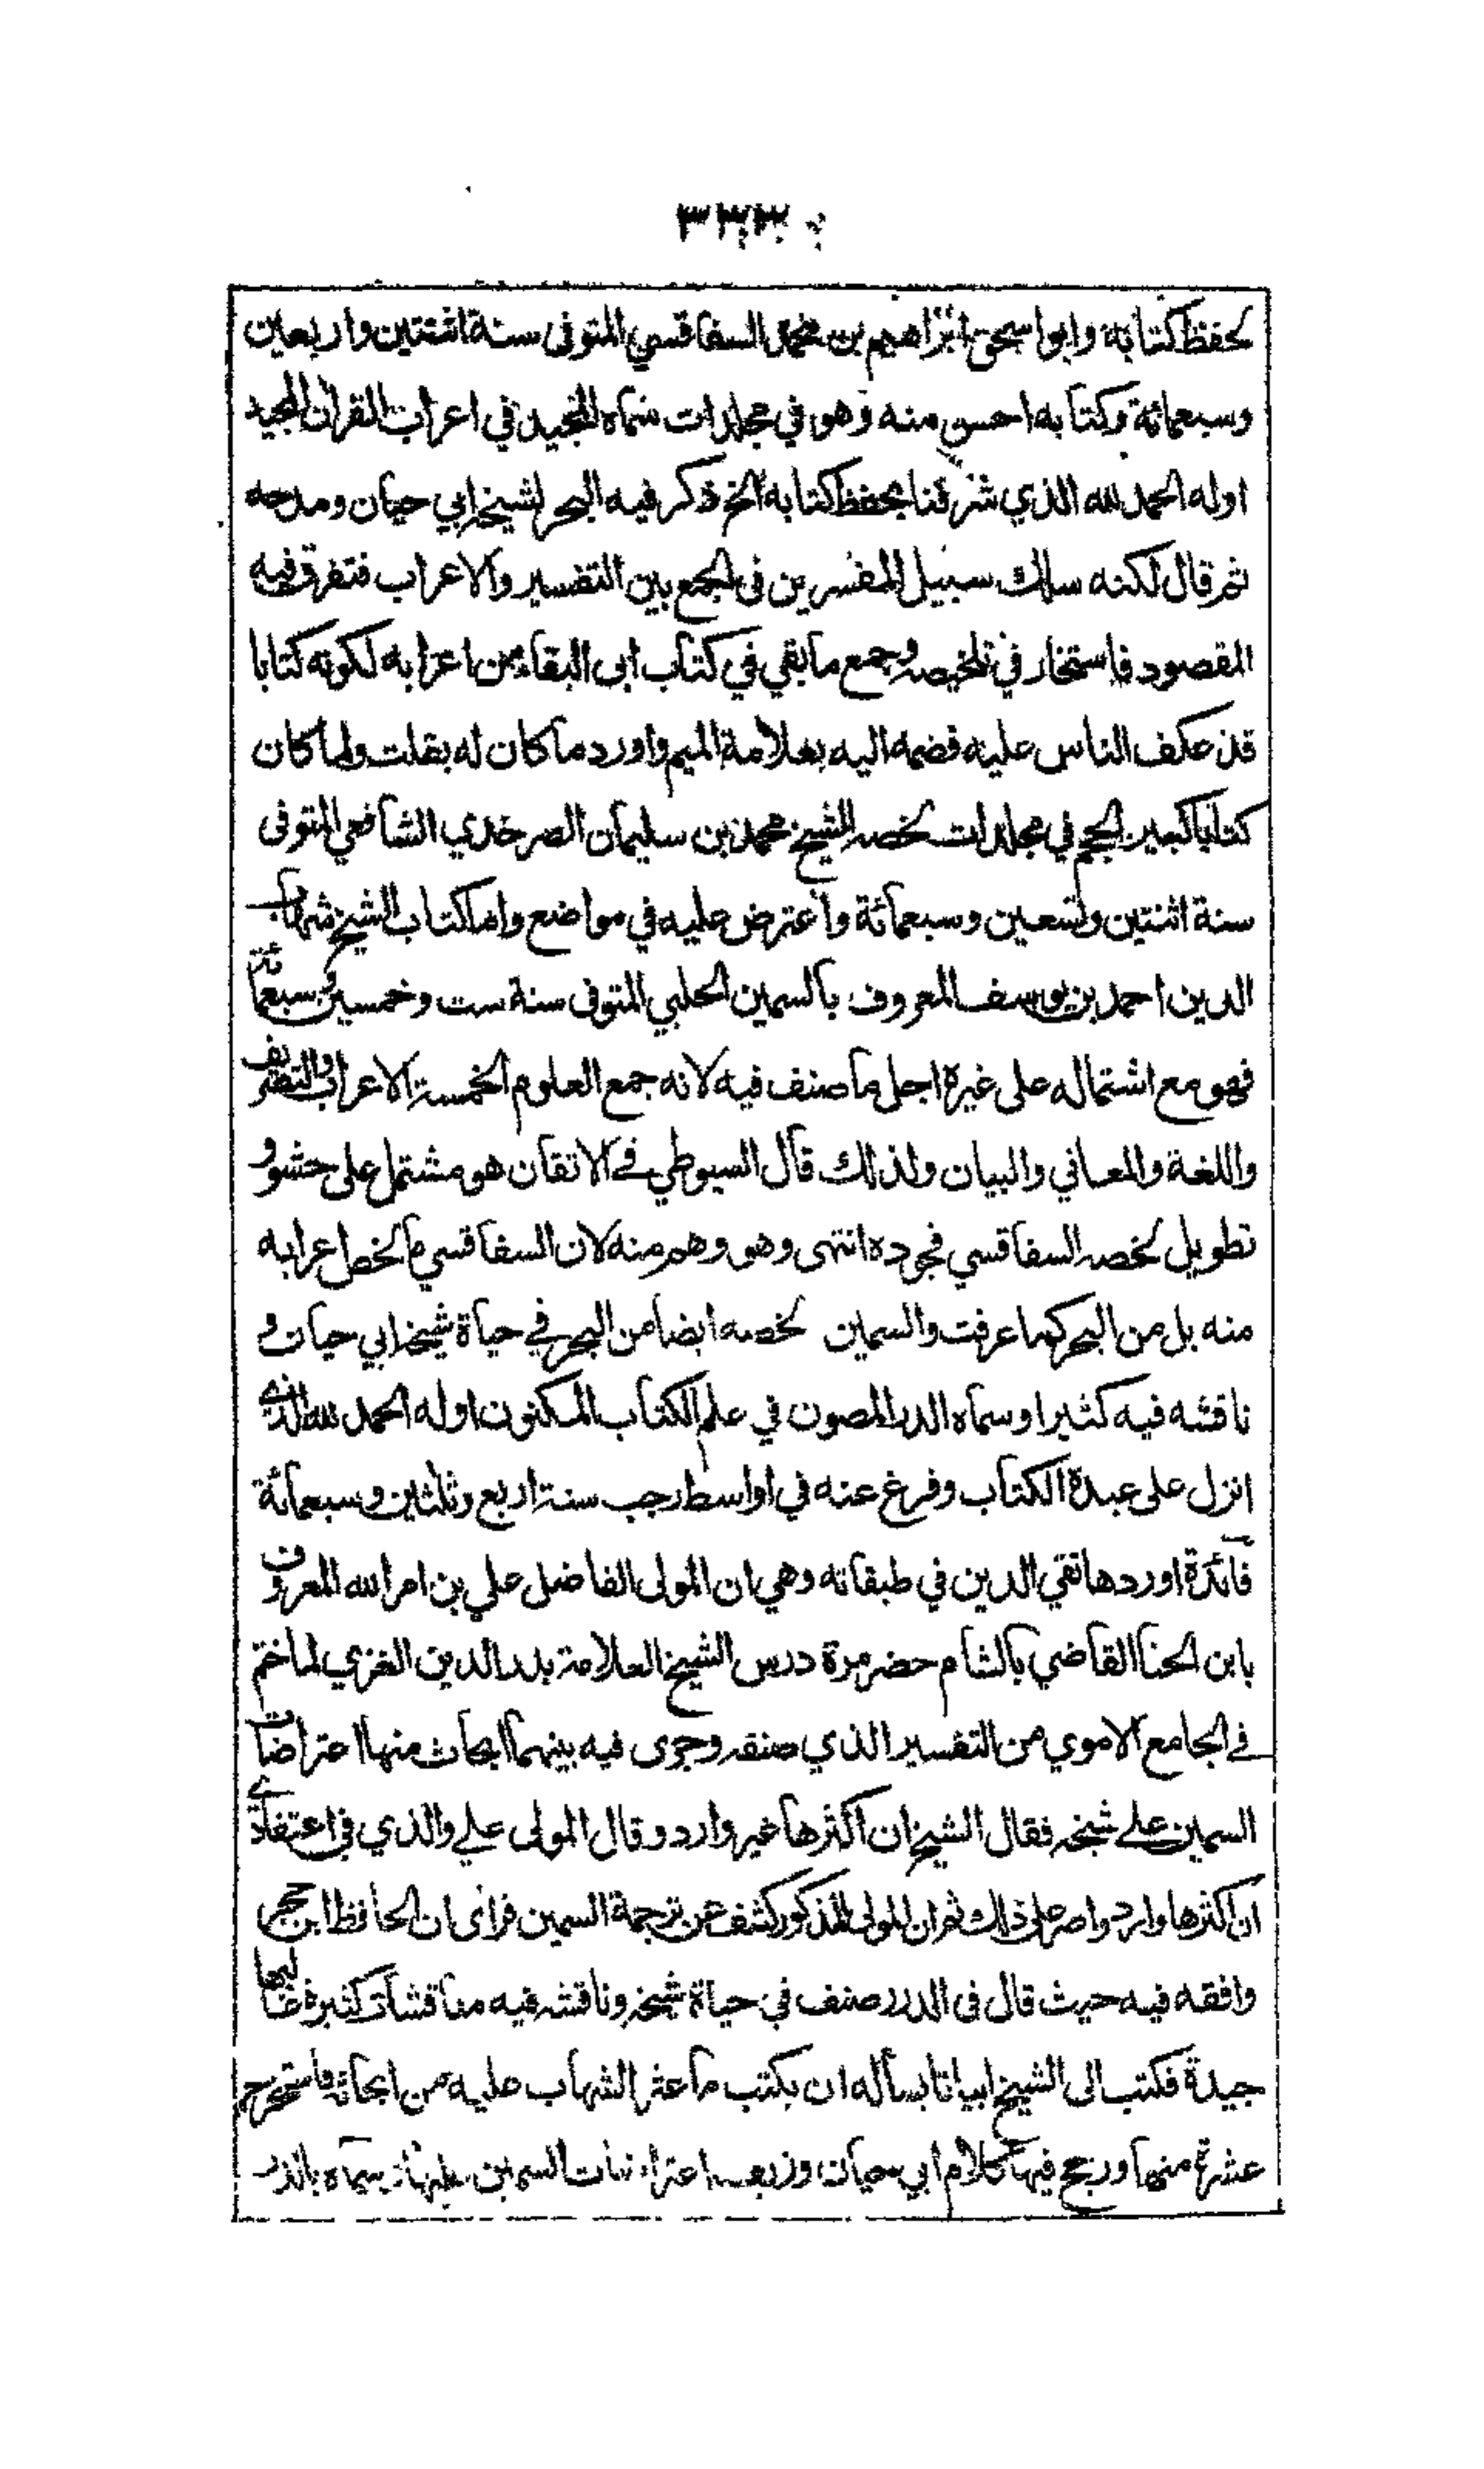 لحفظ كتابه وابو اسحق ابراهيم بن محمد السفاقسي المتوفى سنة اثنتين واربعين
وسبعمائة وكتابه احسن منه وهو في مجلدات سماه المجيد في اعراب القران المجيد
اوله الحمد لله الذي شرفنا بحفظ كتابه الخ ذكر فيه البحر لشيخه ابي حيان ومدحه
ثم قال لكنه سلك سبيل المفسرين فى الجمع بين التفسير والاعراب فتفرق فيه
المقصود فاستخار في تلخيصه وجمع ما بقي في كتاب ابى البقاء من اعرابه لكونه كتابا
قد عكف الناس عليه فضمه اليه بعلامة الميم واورد ما كان له بقلت ولما كان
كتابا كبير الحجم في مجلدات لخصه الشيخ محمد بن سليمان الصرخدي الشافعي المتوفى
سنة اثنتين وتسعين وسبعمائة واعترض عليه في مواضع واما كتاب الشيخ شهاب
الدين احمد بن يوسف المعروف بالسمين الحلبي المتوفى سنة ست وخمسين وسبعمائة
فهو مع اشتماله على غيره اجل ما صنف فيه لانه جمع العلوم الخمسة الاعراب والتصريف
واللغة والمعاني والبيان ولذلك قال السيوطي في الاتقان هو مشتمل على حشو و
تطويل لخصه السفاقسي فجوده انتهى وهو وهم منه لان السفاقسي ما لخص اعرابه
منه بل من البحر كما عرفت والسمين لخصه ايضا من البحر في حياة شيخه ابي حيان و
ناقشه فيه كثيرا وسماه الدر المصون في علم الكتاب المكنون اوله الحمد لله الذي
انزل على عبده الكتاب وفرغ عنه في اواسط رجب سنة اربع وثلثين وسبعمائة
فائدة اوردها تقي الدين في طبقاته وهي ان المولى الفاضل علي بن امر الله المعروف
بابن الحنا القاضي بالشام حضر مرة درس الشيخ العلامة بدر الدين الغزي لما ختم
في الجامع الاموي من التفسير الذي صنفه وجرى فيه بينهما ابحاث منها اعتراضات
السمين على شيخه فقال الشيخ ان اكثرها غير وارد وقال المولى علي والذي في اعتقادي
ان اكثرها وارد واصر على ذلك ثم ان المولى المذكور كشف عن ترجمة السمين فرأى ان الحافظ ابن حجر
وافقه فيه حيث قال فى الدرر صنف في حياة شيخه وناقشه فيه مناقشات كثيرة غالبها
جيدة فكتب الى الشيخ ابياتا يسأله ان يكتب ما عثر الشهاب عليه من ابحاثه فاستخرج
عشرة منها ورجح فيها كلام ابي حيان وزيف اعتراضات السمين عليها وسماه بالدر